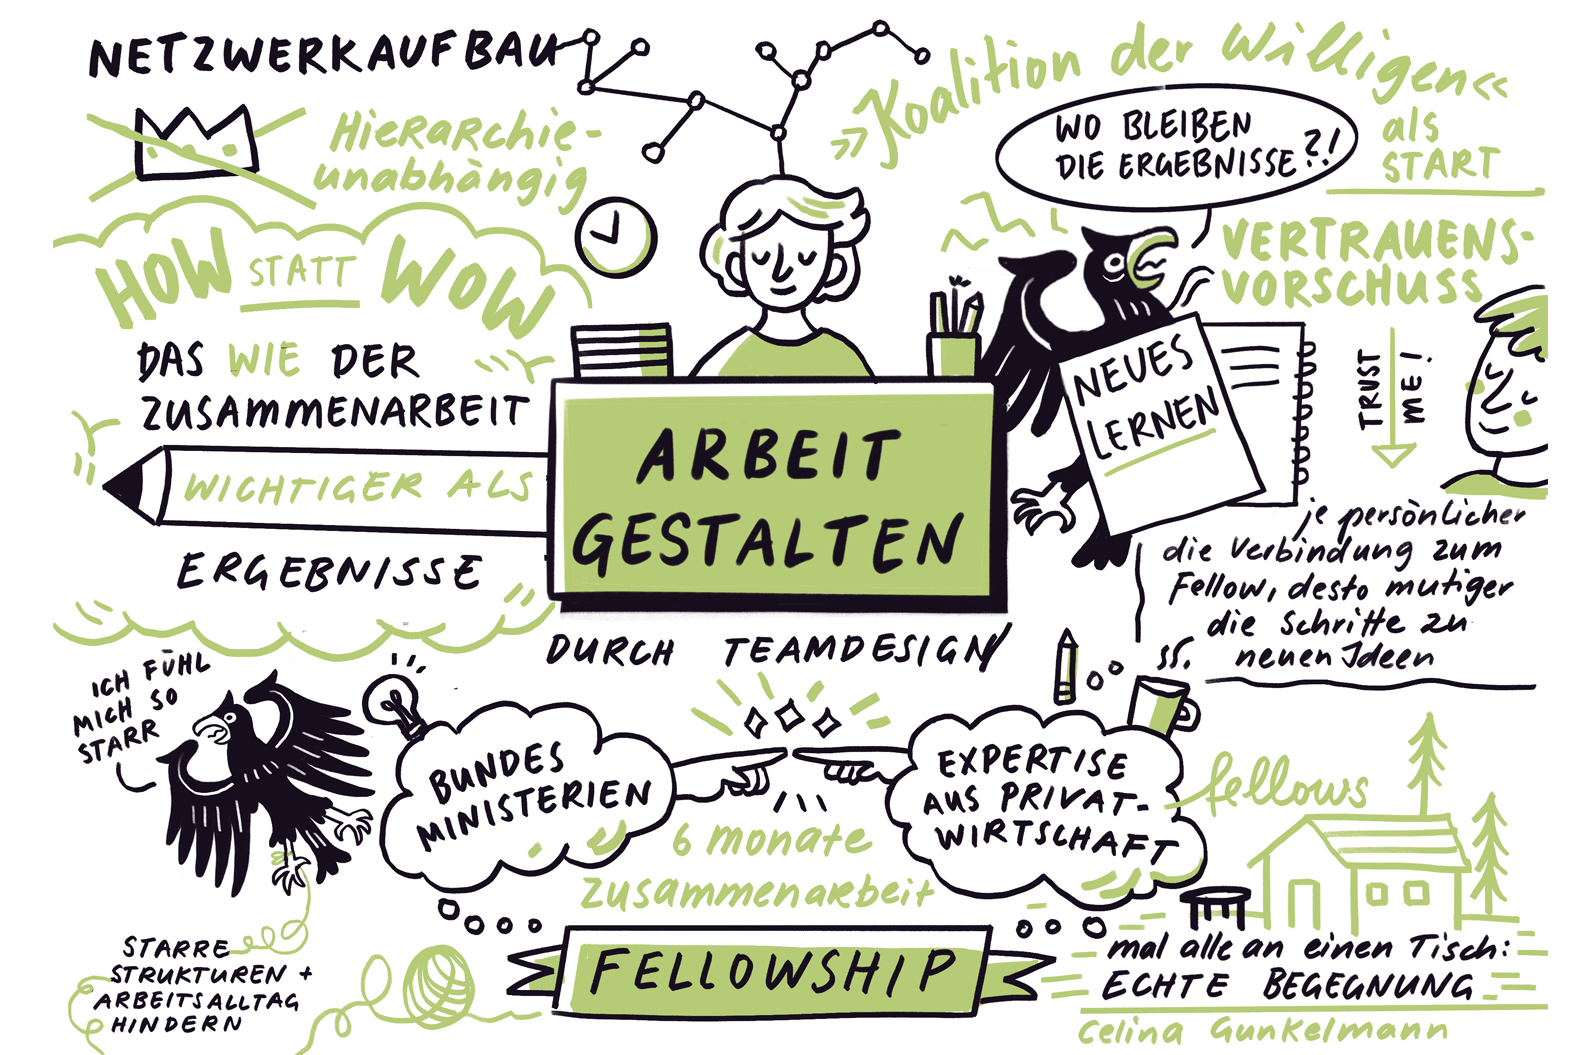 NETZWERKAUFBAU
HIERARCHIE-
unabhängig
HOW STATT WOW
DAS WIE DER
ZUSAMMENARBEIT
WICHTIGER ALS
ERGEBNISSE
»Koalition der Willigen«
als
START
WO BLEIBEN
DIE ERGEBNISSE?!
VERTRAUENS-
VORSCHUSS
NEUES
LERNEN
TRUST
ME!
je persönlicher
die Verbindung zum
Fellow, desto mutiger
die Schritte zu
neuen Ideen
ARBEIT
GESTALTEN
DURCH TEAMDESIGN
ICH FÜHL
MICH SO
STARR
BUNDES
MINISTERIEN
EXPERTISE
AUS PRIVAT-
WIRTSCHAFT
fellows
6 monate
zusammenarbeit
FELLOWSHIP
STARRE
STRUKTUREN +
ARBEITSALLTAG
HINDERN
mal alle an einen Tisch:
ECHTE BEGEGNUNG
Celina Gunkelmann